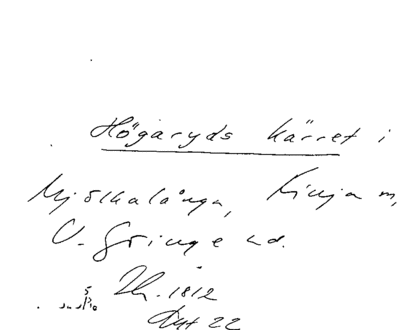 Högaryds kärret i
Mjölkalånga, Finja m,
V. Göinge hd.
Th. 1812
Akt 22